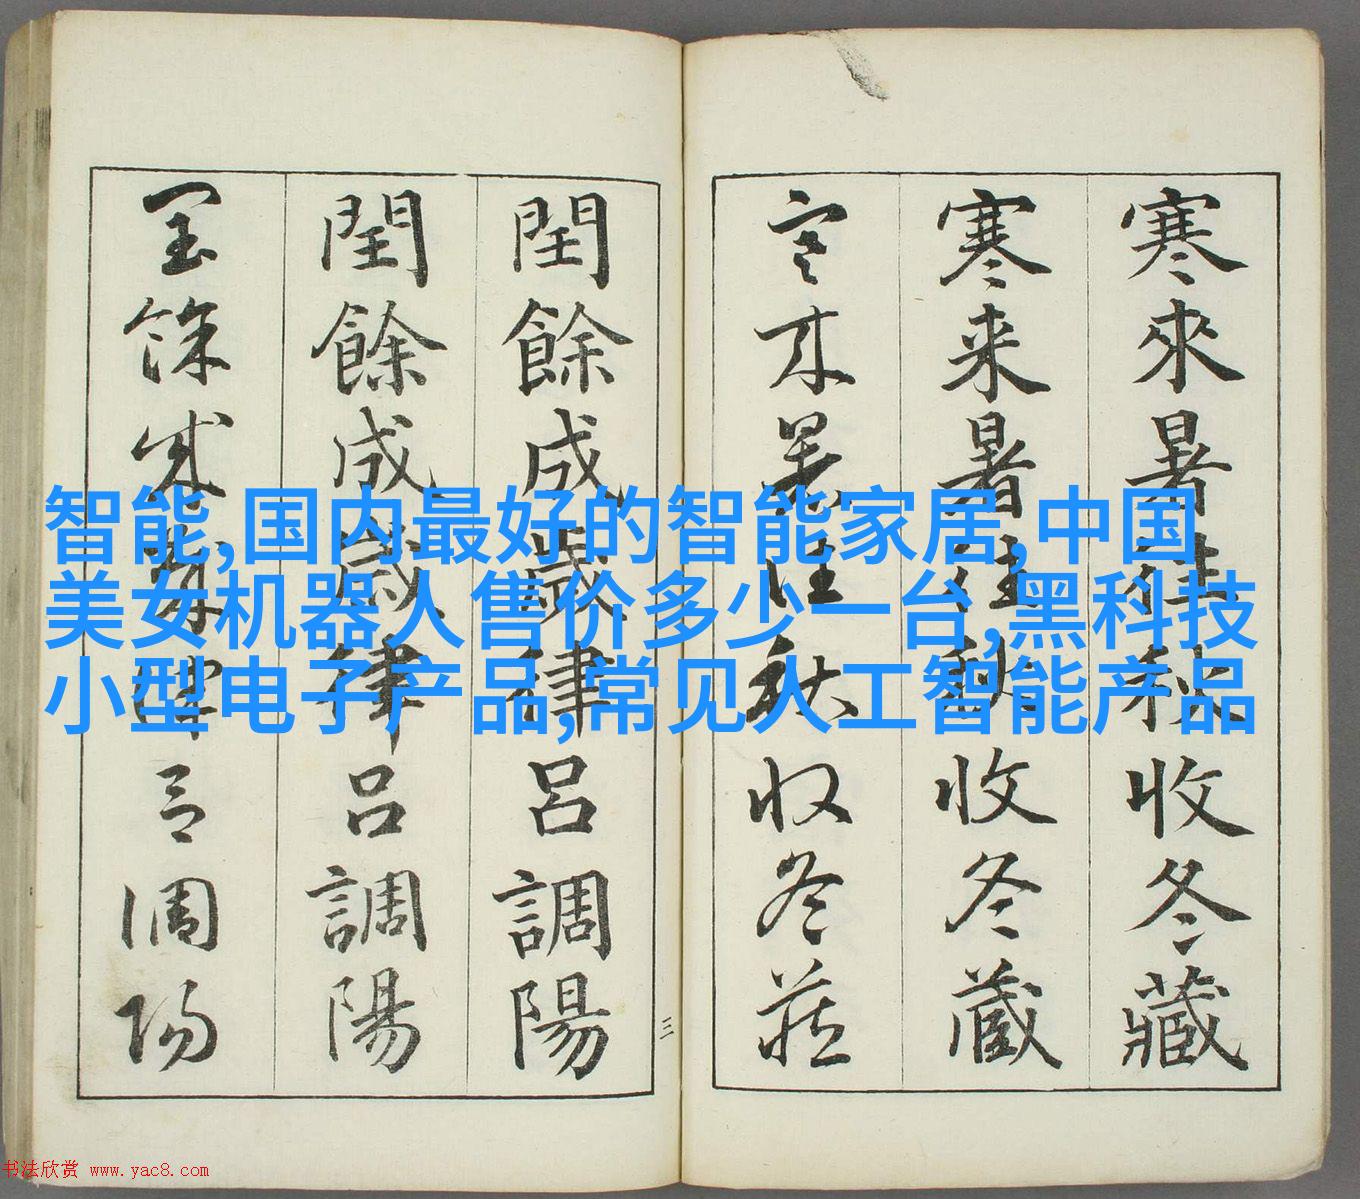 寒來暑往秋收冬藏
寒来暑往秋收冬蔵
寒来暑往秋収冬蔵
閏餘成歲律呂調陽
閏餘成歳律呂調陽
閏餘成歳律呂調陽
三
智能,国内最好的智能家居,中国
美女机器人售价多少一台,黑科技
小型电子产品,常见人工智能产品
书法欣赏 www.yac8.com